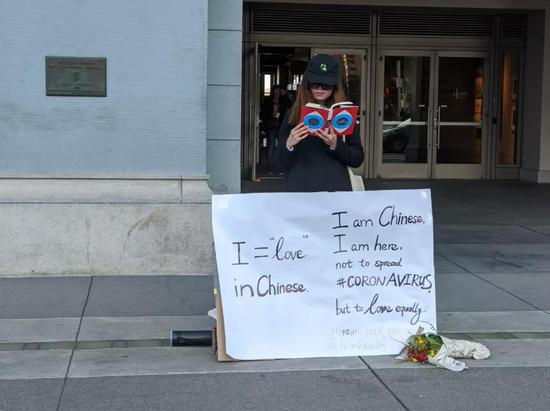 I = "love"
in Chinese.
I am Chinese,
I am here,
not to spread
#CORONAVIRUS,
but to love equally.